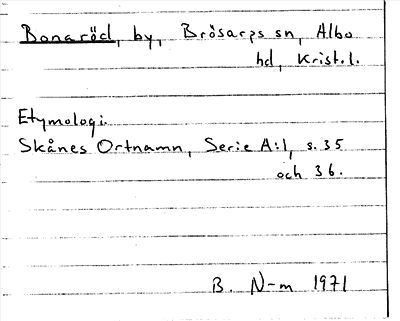 Bonaröd, by, Brösarps sn, Albo
hd, Krist.l.
Etymologi.
Skånes Ortnamn, Serie A:1, s. 35
och 36.
B. N-m 1971